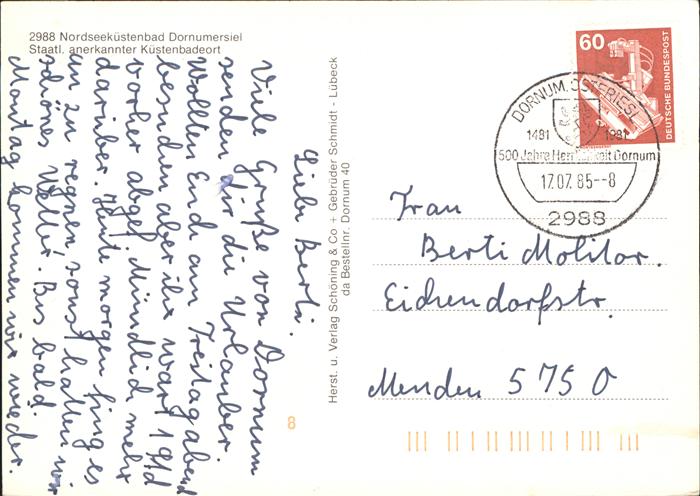 2988 Nordseeküstenbad Dornumersiel
Staatl. anerkannter Küstenbadeort
Liebe Berti.
Viele Grüße von Dornum
senden dir die Urlauber.
Wollten Euch am Freitagabend
besuchen aber ihr wart
vorher abgef. Mündlich mehr
darüber. Heute morgen fing es
an zu regnen sonst hatten wir
schönes Wetter. Bis bald.
Montag kommen wir wieder.
Herst. u. Verlag Schöning & Co + Gebrüder Schmidt - Lübeck
da Bestellnr. Dornum 40
8
60
DEUTSCHE BUNDESPOST
DORNUM, OSTFRIESL
1481 1981
500 Jahre Herrlichkeit Dornum
17.07.85--8
2988
Frau
Berti Molitor.
Eichendorfstr.
Menden 5750